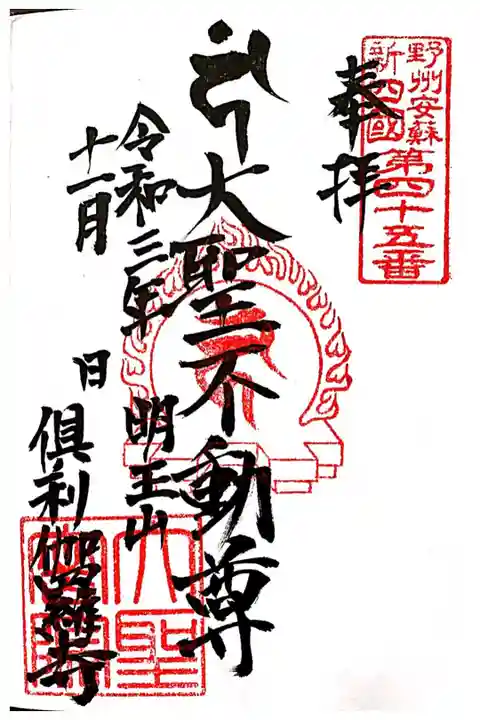 野州安蘇
新四國
第四十五番
奉拝
大聖不動尊
令和三年
十一月
日
明王山
倶利伽羅寺